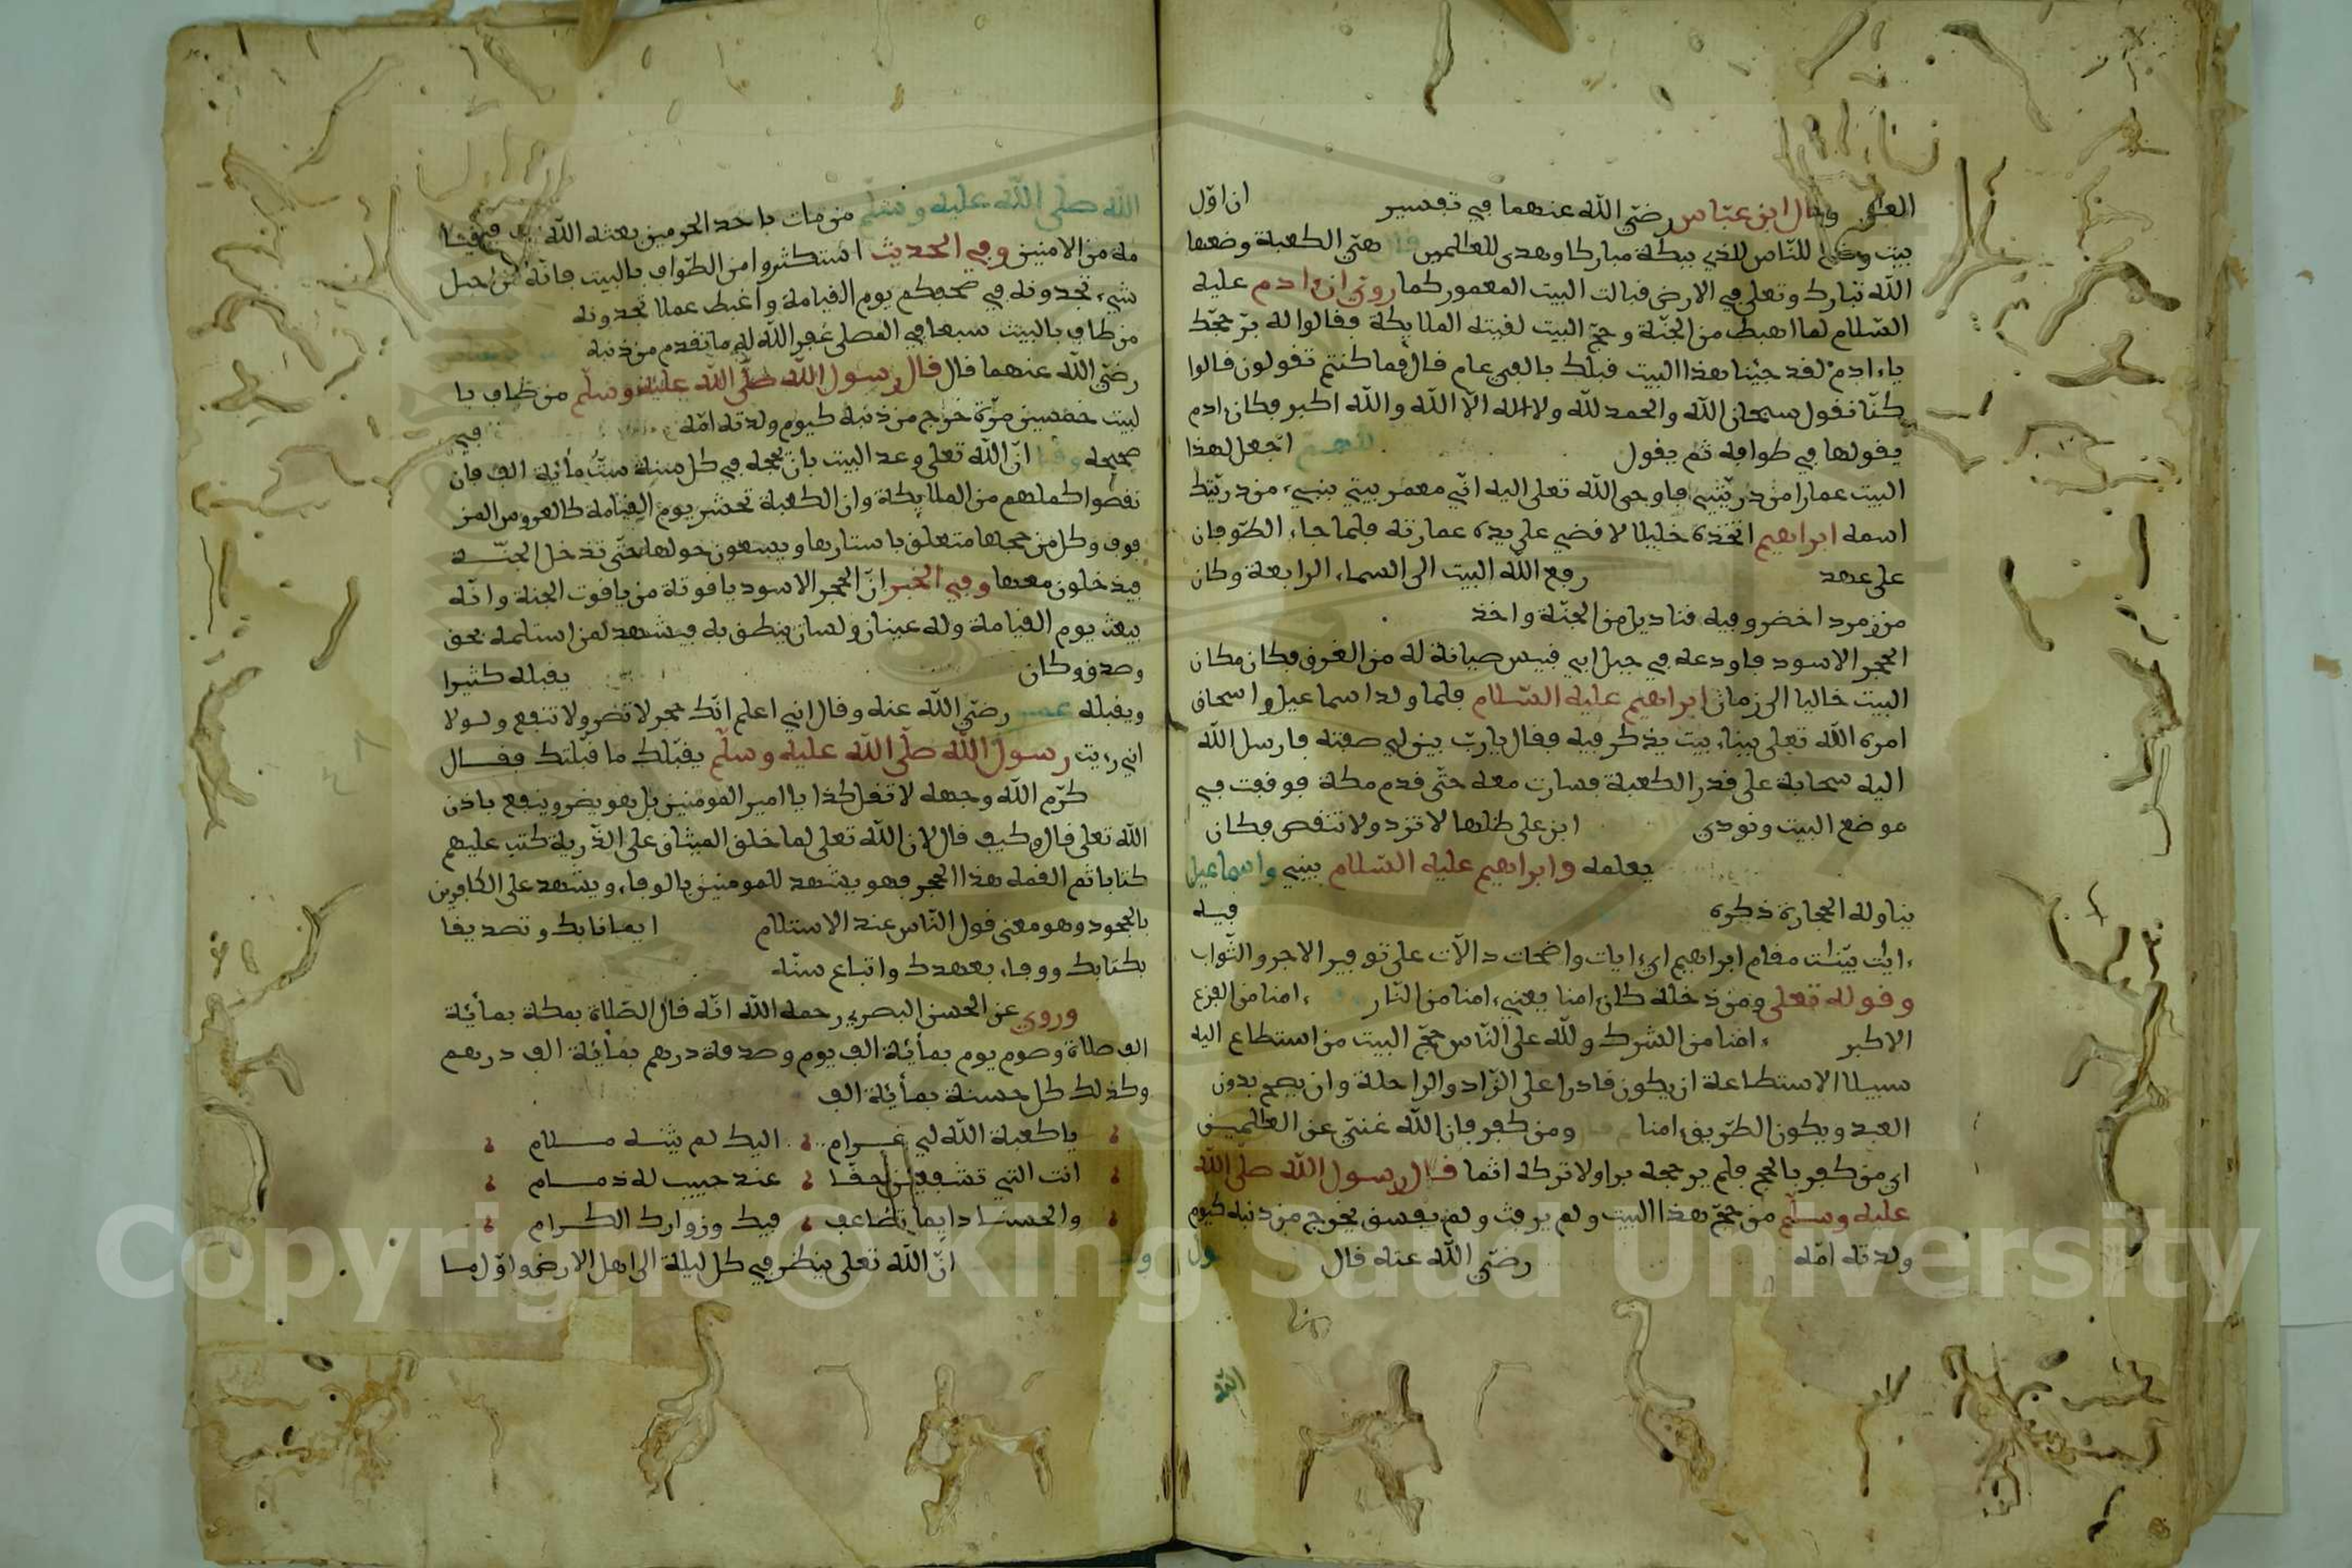 وقال ابن عبّاس رضي الله عنهما في تفسير ان اوّل
بيت وضع للنّاس للذي ببكة مباركا وهدى للعالمين هي الكعبة وضعها
الله تبارك وتعلى في الارض قبالت البيت المعمور كما روي ان ءادم عليه
السّلام لما اهبط من الجنّة وحجّ البيت لقيته الملايكة فقالوا له برّ حجّك
ياءادم لقد حجينا هذا البيت قبلك بالفي عام قال فما كنتم تقولون قالوا
كنّا نقول سبحان الله والحمد لله ولا اله الا الله والله اكبر فكان ادم
يقولها في طوافه ثم يقول اللهم اجعل لهذا
البيت عمارا من ذريّتي فاوحى الله تعلى اليه انّي معمر بيتي بنبيء من ذريّتك
اسمه ابراهيم اتخذه خليلا لا قضي على يده عمارته فلما جاء الطّوفان
على عهد رفع الله البيت الى السماء الرابعة وكان
من زمرد اخضر وفيه قناديل من الجنّة واخذ
الحجر الاسود فاودعه في جبل ابي قبيس صيانة له من الغرق فكان مكان
البيت خاليا الى زمان ابراهيم عليه السّلام فلما ولد اسماعيل واسحاق
امره الله تعلى ببناء بيت يذكر فيه فقال يا ربّ بيّن لي صفته فارسل الله
اليه سحابة على قدر الكعبة فسارت معه حتّى قدم مكة فوقفت في
موضع البيت ونودي ابن على ظلها لا تزد ولا تنقص فكان
يعلمه وابراهيم عليه السّلام يبني واسماعيل
يناوله الحجارة ذكره فيه
ءايات بيّنات مقام ابراهيم اي ءايات واضحات دالات على توفير الاجر والثّواب
وقوله تعلى ومن دخله كان امنا يعني ءامنا من النّار ءامنا من الفزع
الاكبر ءامنا من الشرك ولله على النّاس حجّ البيت من استطاع اليه
سبيلا الاستطاعة ان يكون قادرا على الزّاد والراحلة وان يصح بدون
العبد ويكون الطّريق ءامنا ومن كفر فان الله غنيّ عن العالمين
اي من كفر بالحج فلم ير حجه برا ولا تركه اثما قال رسول الله صلّى الله
عليه وسلّم من حجّ هذا البيت ولم يرفث ولم يفسق يخرج من ذنبه كيوم
ولدته امّه رضي الله عنه قال
الله صلّى الله عليه وسلّم من مات باحد الحرمين بعثه الله
من الامنين وفي الحديث استكثروا من الطّواف بالبيت فانّه من اجل
شيء تجدونه في صحفكم يوم القيامة واغبط عملا تجدونه
من طاف بالبيت سبعا في غفر الله له ما تقدم من ذنبه
رضي الله عنهما قال قال رسول الله صلّى الله عليه وسلّم من طاف با
لبيت خمسين مرّة خرج من ذنبه كيوم ولدته امّه في
صحيحه انّ الله تعلى وعد البيت بان يحجه في كل سنة ستّ مأئة الف فان
نقصوا كملهم من الملايكة وان الكعبة تحشر يوم القيامة كالعروس المز
فوف وكل من حجها متعلق باستارها ويسعون حولها حتّى تدخل الجنّة
فيدخلون معها وفي الخبر انّ الحجر الاسود ياقوتة من ياقوت الجنة وانّه
يبعث يوم القيامة وله عينان ولسان ينطق به فيشهد لمن استلمه بحق
وصدق وكان يقبله كثيرا
ويقبله عمر رضي الله عنه وقال اني اعلم انّك حجر لا تضر ولا تنفع ولولا
اني رءيت رسول الله صلّى الله عليه وسلّم يقبّلك ما قبّلتك فقال
كرّم الله وجهه لا تقل كذا يا امير المومنين بل هو يضر وينفع باذن
الله تعلى قال وكيف قال لان الله تعلى لما خلق الميثاق على الذّرية كتب عليهم
كتابا ثم القمه هذا الحجر فهو يشهد للمومنين بالوفاء ويشهد على الكافرين
بالجحود وهو معنى قول النّاس عند الاستلام ايمانا بك وتصديقا
بكتابك ووفاء بعهدك واتباع سنّة
وروي عن الحسن البصري رحمه الله انّه قال الصّلاة بمكة بمأئة
الف صلاة وصوم يوم بمأئة الف يوم وصدقة درهم بمأئة الف درهم
وكذلك كل حسنة بمأئة الف
يا كعبة الله لي غرام اليك لم يثنه ملام
انت التي تشفعين حقا عند حبيب له ذمام
والحسنا دايما تضاعف فيك وزوارك الكرام
انّ الله تعلى ينظر في كل ليلة الى اهل الارض واوّل ما
Copyright © King Saud University